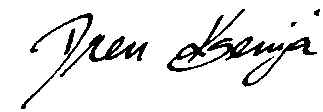 Dren Ksenija